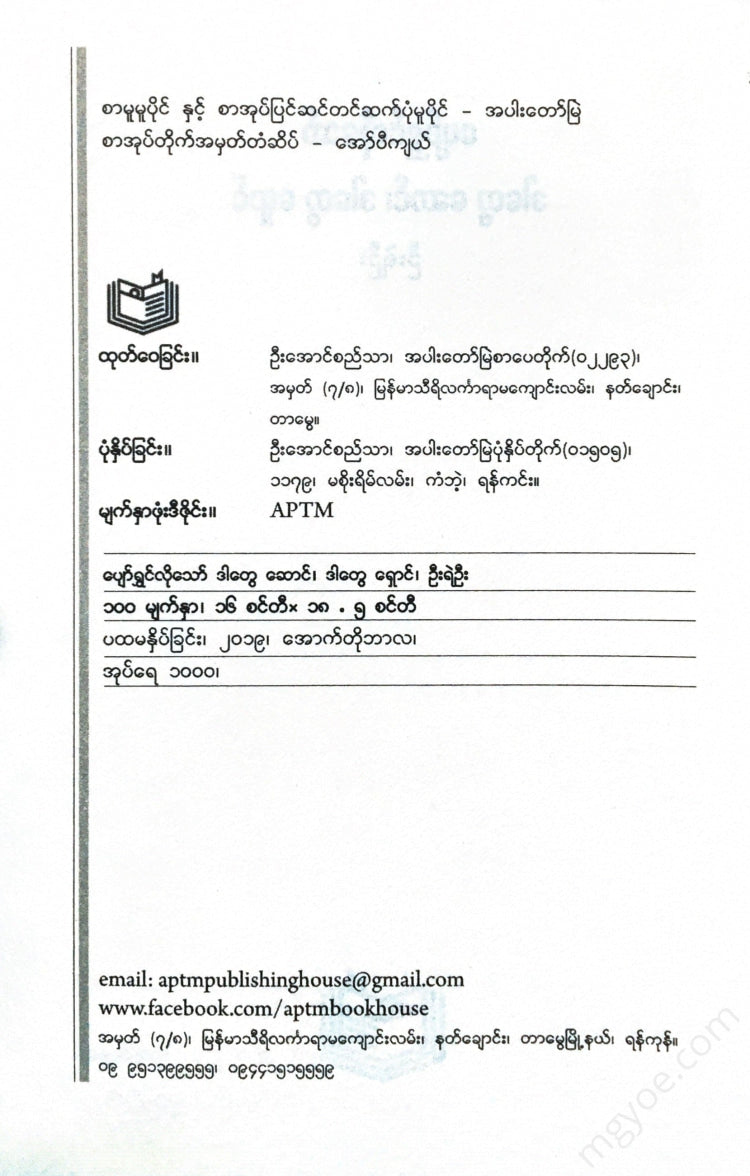 စာမူမူပိုင် နှင့် စာအုပ်ပြင်ဆင်တင်ဆက်ပုံမူပိုင် – အပါးတော်မြဲ
စာအုပ်တိုက်အမှတ်တံဆိပ် – အော်ပီကျယ်
ထုတ်ဝေခြင်း။ ဦးအောင်စည်သာ၊ အပါးတော်မြဲစာပေတိုက်(၀၂၂၉၃)၊
အမှတ် (၇/၈)၊ မြန်မာသီရိလင်္ကာရာမကျောင်းလမ်း၊ နတ်ချောင်း၊
တာမွေ။
ပုံနှိပ်ခြင်း။ ဦးအောင်စည်သာ၊ အပါးတော်မြဲပုံနှိပ်တိုက်(၀၁၅၀၅)၊
၁၁၇၉၊ မစိုးရိမ်လမ်း၊ ကံဘဲ့၊ ရန်ကင်း။
မျက်နှာဖုံးဒီဇိုင်း။ APTM
ပျော်ရွှင်လိုသော် ဒါတွေ ဆောင်၊ ဒါတွေ ရှောင်၊ ဦးရဲဦး
၁၀၀ မျက်နှာ၊ ၁၆ စင်တီ× ၁၈ . ၅ စင်တီ
ပထမနှိပ်ခြင်း၊ ၂၀၁၉၊ အောက်တိုဘာလ၊
အုပ်ရေ ၁၀၀၀၊
email: aptmpublishinghouse@gmail.com
www.facebook.com/aptmbookhouse
အမှတ် (၇/၈)၊ မြန်မာသီရိလင်္ကာရာမကျောင်းလမ်း၊ နတ်ချောင်း၊ တာမွေမြို့နယ်၊ ရန်ကုန်။
၀၉ ၉၅၁၃၉၉၅၅၅၊ ၀၉၄၄၁၅၁၅၅၅၉
mgyoe.com